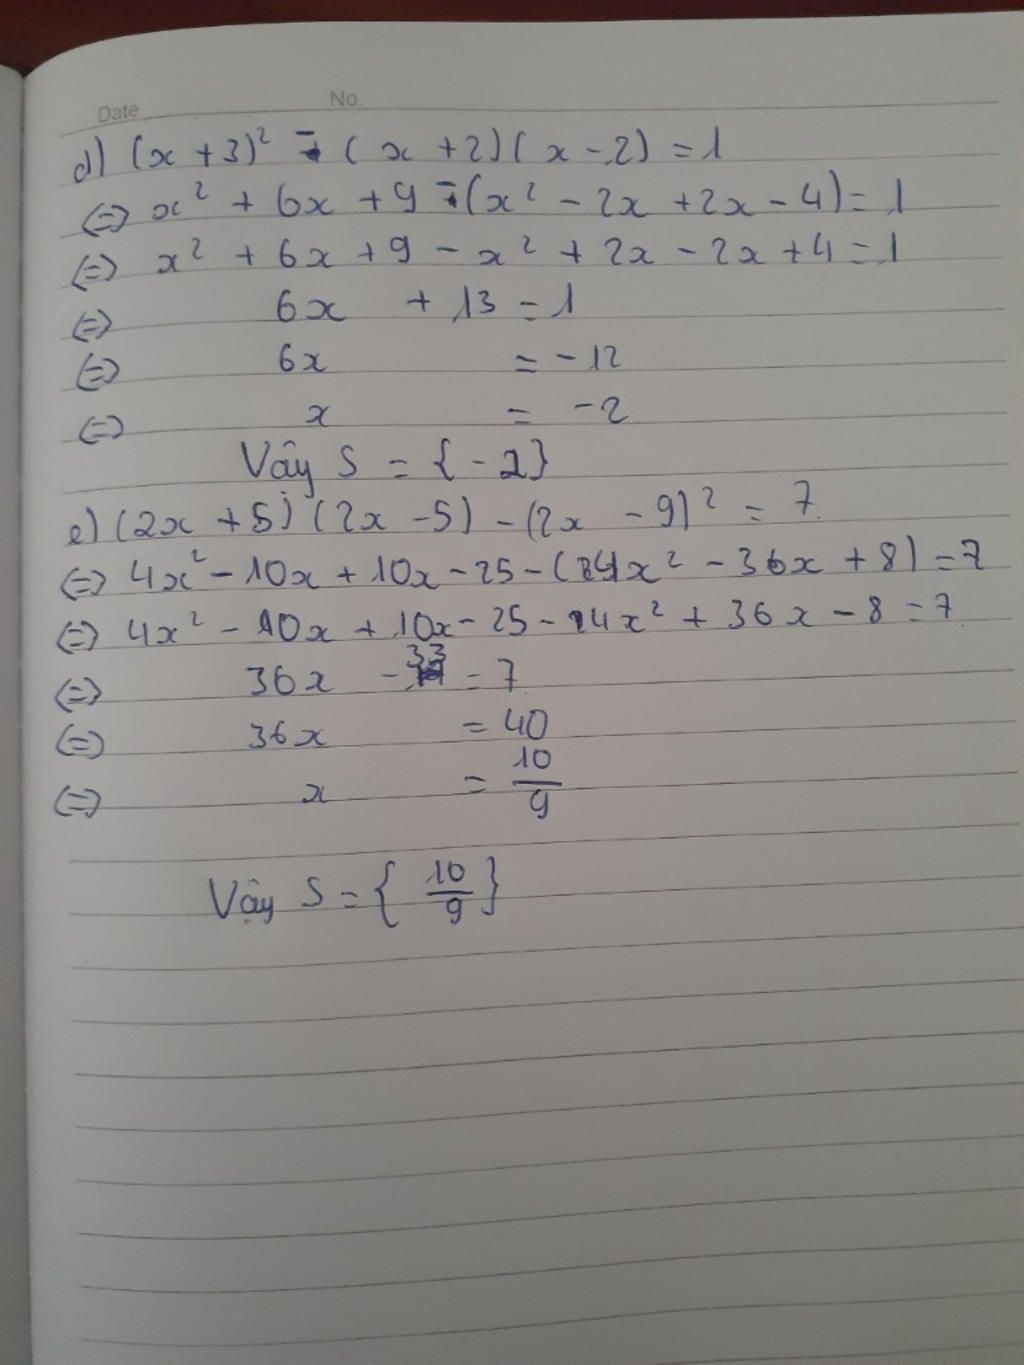 Date No.
d) (x + 3)² - (x + 2)(x - 2) = 1
(=) x² + 6x + 9 - (x² - 2x + 2x - 4) = 1
(=) x² + 6x + 9 - x² + 2x - 2x + 4 = 1
(=) 6x + 13 = 1
(=) 6x = -12
(=) x = -2
Vây S = {-2}
e) (2x + 5)(2x - 5) - (2x - 9)² = 7
(=) 4x² - 10x + 10x - 25 - (4x² - 36x + 8) = 7
(=) 4x² - 10x + 10x - 25 - 4x² + 36x - 8 = 7
(=) 36x - 33 = 7
(=) 36x = 40
(=) x = 10/9
Vậy S = {10/9}